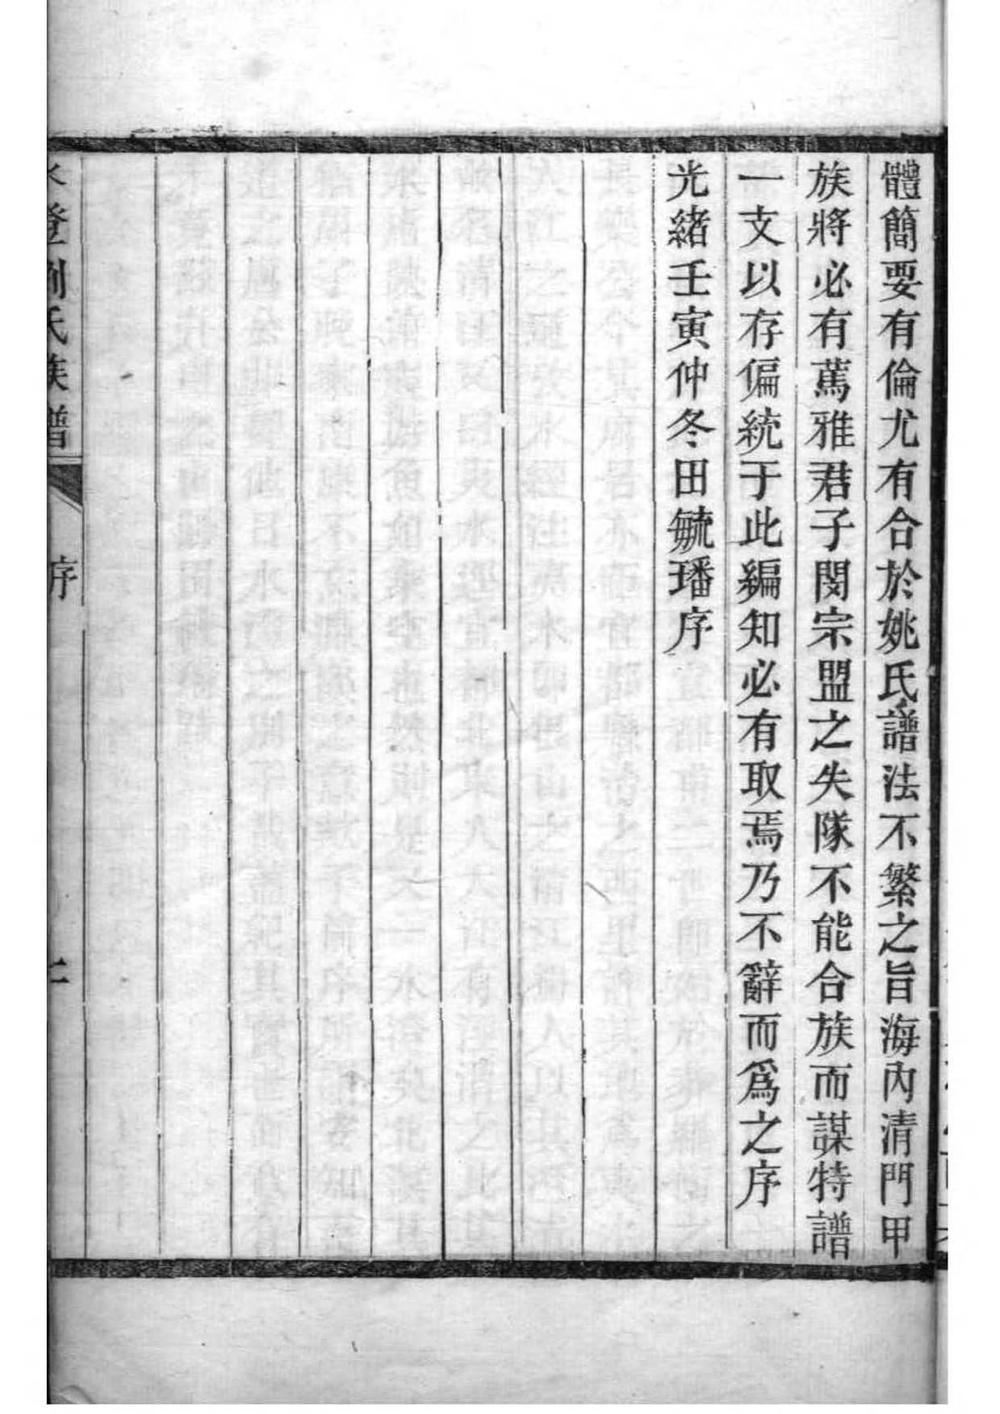 體簡要有倫尤有合於姚氏譜法不繁之旨海內清門甲
族將必有蔫雅君子閔宗盟之失隊不能合族而謀特譜
一支以存偏統于此編知必有取焉乃不辭而爲之序
光緒壬寅仲冬田毓璠序
水澄劉氏族譜
序